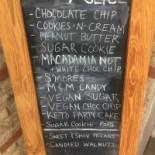 - CHOCOLATE CHIP
- COOKIES-N-CREAM
- PEANUT BUTTER
- SUGAR COOKIE
- MACADAMIA NUT
+ WHITE CHOC CHIP
- S'MORES
- M&M CANDY
- VEGAN SUGAR
- VEGAN CHOC CHIP
- KETO PARTY CAKE
- SUGAR COOKIE POPS
- SWEET & SPICY PECANS
- CANDIED WALNUTS